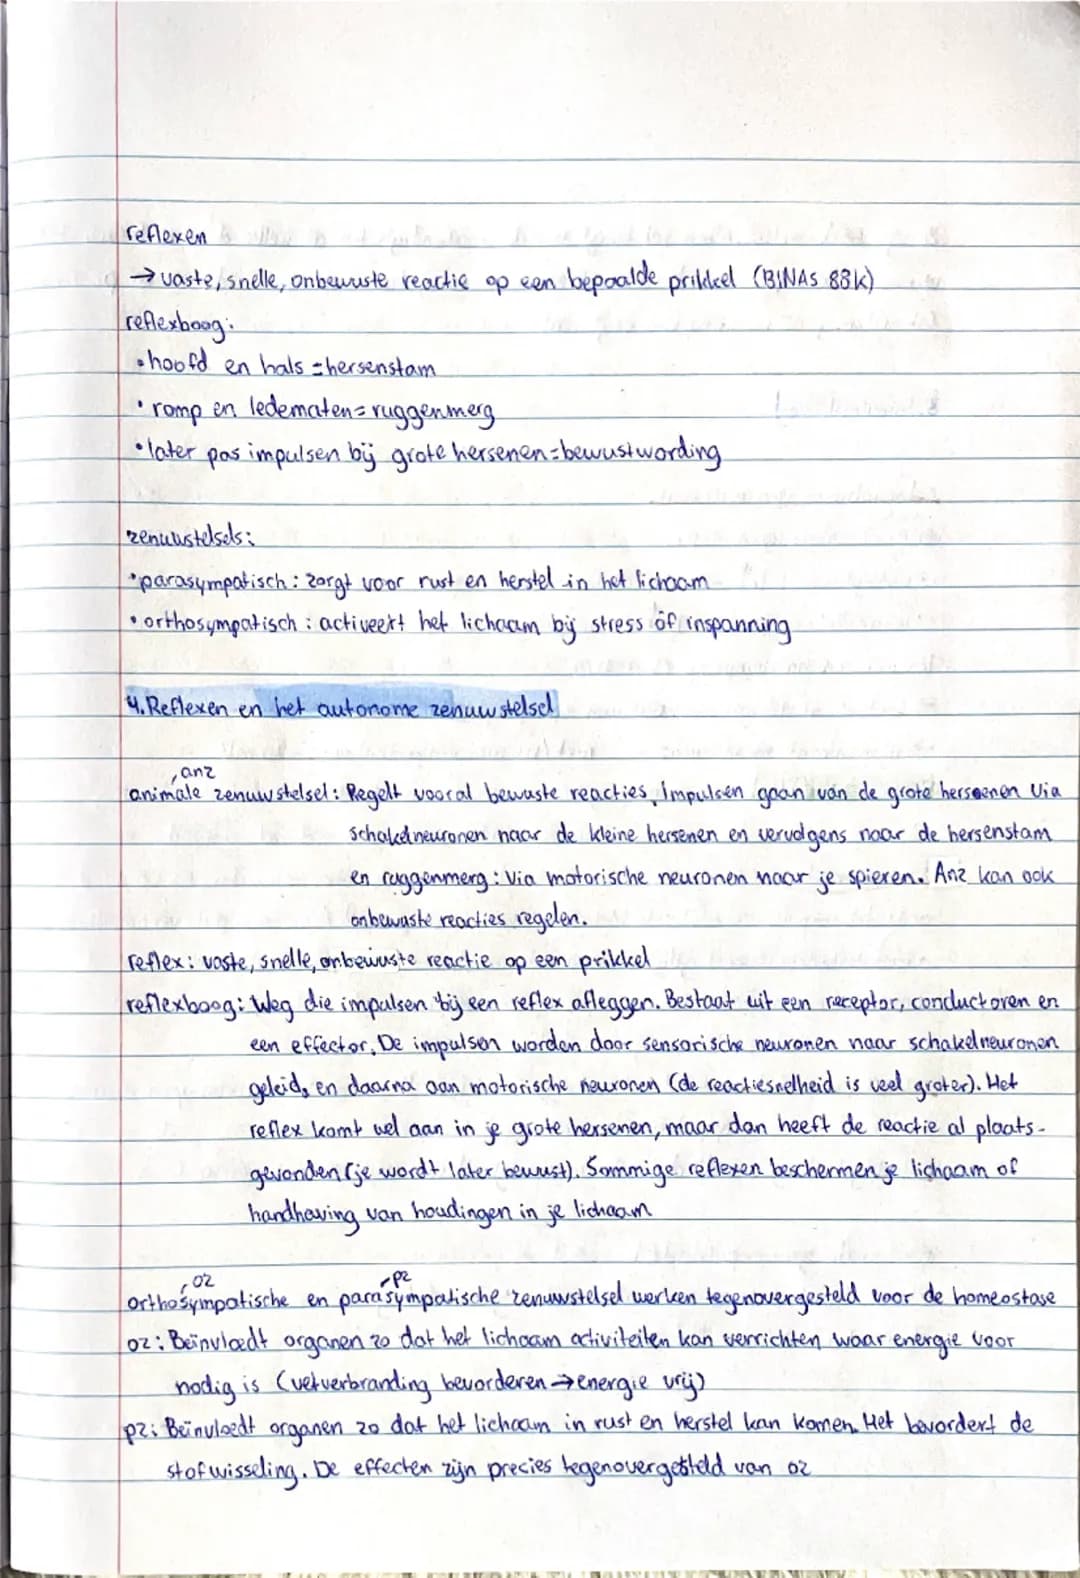 reflexen
→ vaste, snelle, onbewuste reactie op een bepaalde prikkel (BINAS 88k)
reflexboog:
• hoofd en hals = hersenstam
• romp en ledematen = ruggenmerg
• later pas impulsen bij grote hersenen = bewustwording
zenuwstelsels:
• parasympatisch : zorgt voor rust en herstel in het lichaam
• orthosympatisch : activeert het lichaam bij stress óf inspanning
4. Reflexen en het autonome zenuwstelsel
, anz
animale zenuwstelsel : Regelt vooral bewuste reacties, impulsen gaan van de grote hersenen via
schakelneuronen naar de kleine hersenen en vervolgens naar de hersenstam
en ruggenmerg : Via motorische neuronen naar je spieren. Anz kan ook
onbewuste reacties regelen.
reflex : vaste, snelle, onbewuste reactie op een prikkel
reflexboog : Weg die impulsen bij een reflex afleggen. Bestaat uit een receptor, conductoren en
een effector. De impulsen worden door sensorische neuronen naar schakelneuronen
geleid, en daarna aan motorische neuronen (de reactiesnelheid is veel groter). Het
reflex komt wel aan in je grote hersenen, maar dan heeft de reactie al plaats-
gevonden (je wordt later bewust). Sommige reflexen beschermen je lichaam of
handhaving van houdingen in je lichaam
, oz , pz
orthosympatische en parasympatische zenuwstelsel werken tegenovergesteld voor de homeostase
oz : Beïnvloedt organen zo dat het lichaam activiteiten kan verrichten waar energie voor
nodig is (vetverbranding bevorderen → energie vrij)
pz : Beïnvloedt organen zo dat het lichaam in rust en herstel kan komen. Het bevordert de
stofwisseling. De effecten zijn precies tegenovergesteld van oz